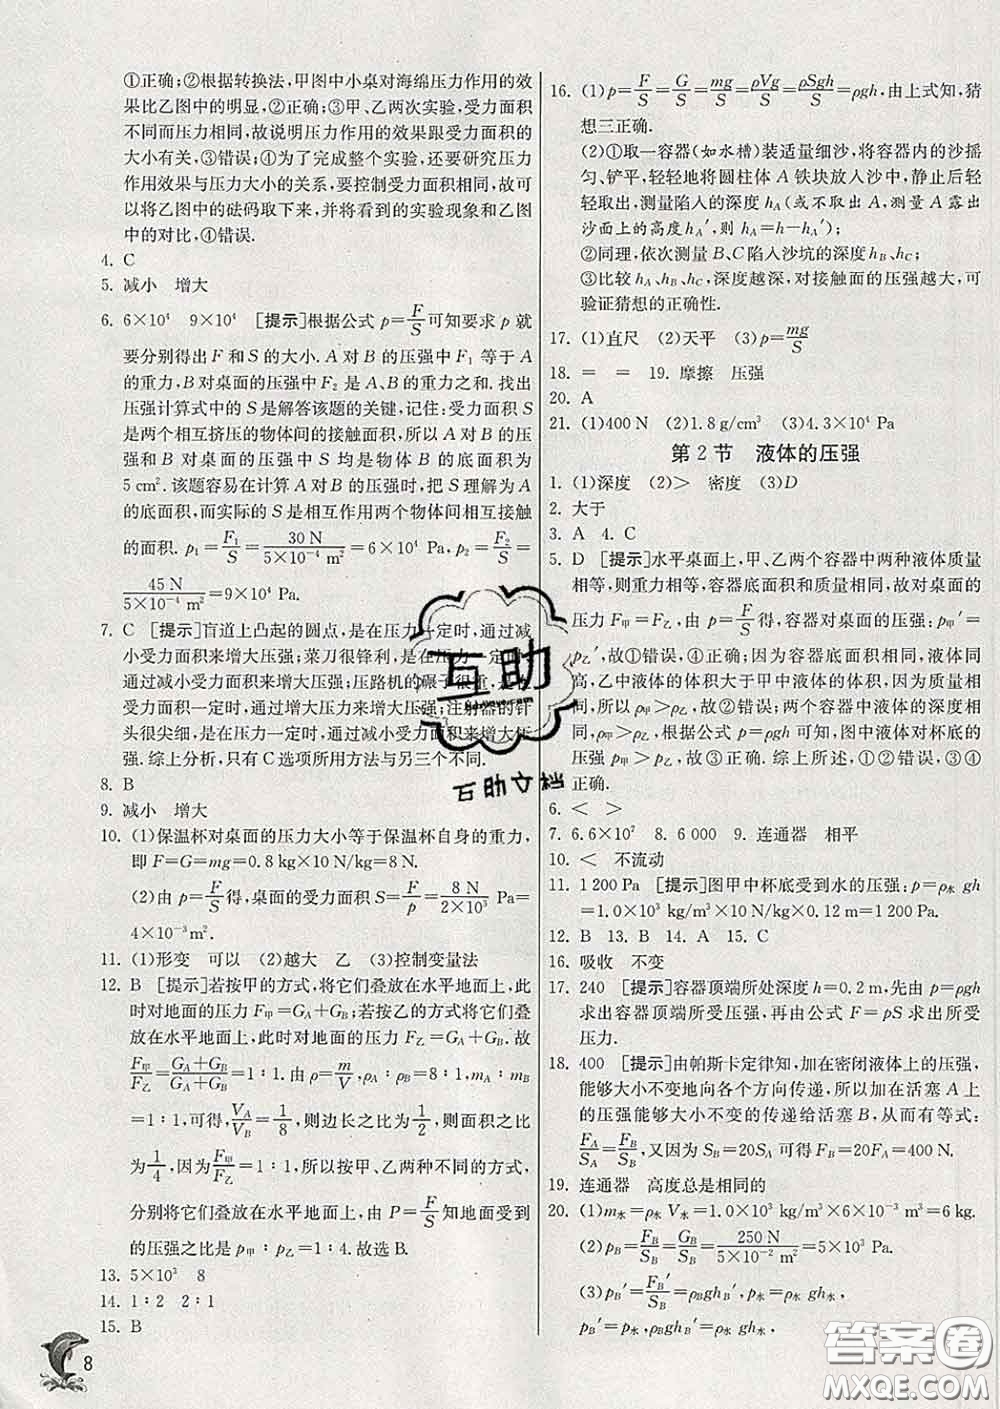 ①正确;②根据转换法,甲图中小桌对海绵压力作用的效
果比乙图中的明显,②正确;③甲、乙两次实验,受力面积
不同而压力相同,故说明压力作用的效果跟受力面积的
大小有关,③错误;④为了完成整个实验,还要研究压力
作用效果与压力大小的关系,要控制受力面积相同,故可
以将甲图中的砝码取下来,并将看到的实验现象和乙图
中的对比,④错误.
4. C
5. 减小 增大
6. 6×10⁴ 9×10⁴ [提示]根据公式 p=F/S可知要求 p 就
要分别得出 F 和 S 的大小. A 对 B 的压强中 F₁ 等于 A
的重力,B 对桌面的压强中 F₂ 是 A、B 的重力之和. 找出
压强计算式中的 S 是解答该题的关键,记住:受力面积 S
是两个相互挤压的物体间的接触面积,所以 A 对 B 的压
强和 B 对桌面的压强中 S 均是物体 B 的底面积为
5 cm². 该题容易在计算 A 对 B 的压强时,把 S 理解为 A
的底面积,而实际的 S 是相互作用两个物体间相互接触
的面积. p₁=F₁/S=30 N/(5×10⁻⁴ m²)=6×10⁴ Pa,p₂=F₂/S=
45 N/(5×10⁻⁴ m²)=9×10⁴ Pa.
7. C [提示]盲道上凸起的圆点,是在压力一定时,通过减
小受力面积来增大压强;菜刀很锋利,是在压力一定时,
通过减小受力面积来增大压强;压路机的碾子很重,是在
受力面积一定时,通过增大压力来增大压强;注射器的针
头很尖细,是在压力一定时,通过减小受力面积来增大压
强. 综上分析,只有 C 选项所用方法与另三个不同.
8. B
9. 减小 增大
10. (1)保温杯对桌面的压力大小等于保温杯自身的重力,
即 F=G=mg=0.8 kg×10 N/kg=8 N.
(2)由 p=F/S得,桌面的受力面积 S=F/p=8 N/(2×10³ Pa)=
4×10⁻³m².
11. (1)形变 可以 (2)越大 乙 (3)控制变量法
12. B [提示]若按甲的方式,将它们叠放在水平地面上,此
时对地面的压力 F甲=GA+GB;若按乙的方式将它们叠
放在水平地面上,此时对地面的压力 F乙=GA+GB. 故
F甲/F乙=(GA+GB)/(GA+GB)=1∶1. 由 ρ=m/V,ρA∶ρB=1∶1,mA∶mB
=1∶1,可得,VA/VB=1/8,则边长之比为1/2,底面积之比
为1/4,因为F甲/F乙=1∶1,所以按甲、乙两种不同的方式,
分别将它们叠放在水平地面上,由 P=F/S知地面受到
的压强之比是 p甲∶p乙=1∶4. 故选 B.
13. 5×10³ 8
14. 1∶2 2∶1
15. B
8
16. (1)p=F/S=G/S=mg/S=ρVg/S=ρSgh/S=ρgh,由上式知,猜
想三正确.
(2)①取一容器(如水槽)装适量细沙,将容器内的沙摇
匀、铲平,轻轻地将圆柱体 A 铁块放入沙中,静止后轻
轻取出,测量陷入的深度 hA(或不取出 A,测量 A 露出
沙面上的高度 hA′,则 hA=h-hA′);
②同理,依次测量 B、C 陷入沙坑的深度 hB、hC;
③比较 hA、hB、hC,深度越深,对接触面的压强越大,可
验证猜想的正确性.
17. (1)直尺 (2)天平 (3)p=mg/S
18. = = 19. 摩擦 压强
20. A
21. (1)400 N (2)1.8 g/cm³ (3)4.3×10⁴ Pa
第 2 节 液体的压强
1. (1)深度 (2)> 密度 (3)D
2. 大于
3. A 4. C
5. D [提示]水平桌面上,甲、乙两个容器中两种液体质量
相等,则重力相等,容器底面积和高度相同,故对桌面的
压力 F甲=F乙,故由 p=F/S得,容器对桌面的压强:p甲′=
p乙′,故①错误,④正确;因为容器底面积相同,液体同
高,乙中液体的体积大于甲中液体的体积,因为质量相
同,ρ甲>ρ乙,故②错误;两个容器中液体的深度相
同,ρ甲>ρ乙,根据公式 p=ρgh 可知,图中液体对杯底的
压强 p甲>p乙,故③正确. 综上所述,①②错误,③④
正确.
6. < >
7. 6.6×10⁷ 8. 6 000 9. 连通器 相平
10. < 不流动
11. 1 200 Pa [提示]图甲中杯底受到水的压强:p=ρ水 gh
=1.0×10³ kg/m³×10 N/kg×0.12 m=1 200 Pa.
12. B 13. B 14. A 15. C
16. 吸收 不变
17. 240 [提示]容器顶端所处深度 h=0.2 m,先由 p=ρgh
求出容器顶端所受压强,再由公式 F=pS 求出所受
压力.
18. 400 [提示]由帕斯卡定律知,加在密闭液体上的压强,
能够大小不变地向各个方向传递,所以加在活塞 A 上
的压强能够大小不变的传递给活塞 B,从而有等式:
FA/SA=FB/SB,又因为 SB=20SA 可得 FB=20FA=400 N.
19. 连通器 高度总是相同的
20. (1)m水=ρ水 V水=1.0×10³ kg/m³×6×10⁻³ m³=6 kg.
(2)pB=FB/SB=GB/SB=250 N/(5×10⁻² m²)=5×10³ Pa.
(3)pB′=FB′/SB=ρBghB′,p水=ρ水 gh水,
pB′=p水,ρBghB′=ρ水 gh水,
互助
互助文档
答案圈
MXQE.COM